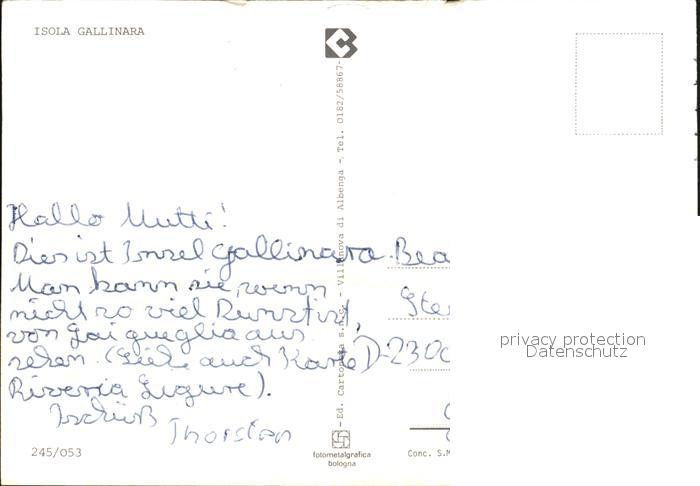 ISOLA GALLINARA
Hallo Mutti!
Dies ist Insel Gallinara.
Man kann sie, wenn
nicht so viel Dunst ist,
von Laigueglia aus
sehen. (Siehe auch Karte
Riveria Ligure).
Tschüß
Thorsten
245/053
Ed. Cartopalla s.n.c. - Villanova di Albenga - Tel. 0182/58867
fotometalgrafica
bologna
Bea
Ste
D-2300
Conc. S.M
privacy protection
Datenschutz